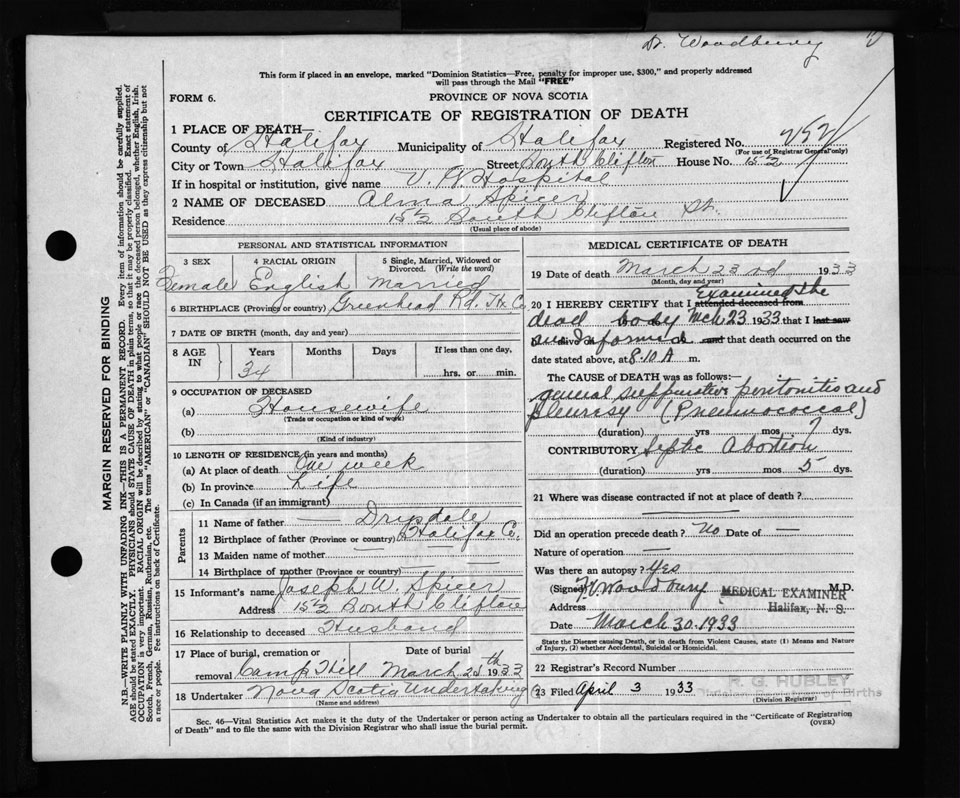 Dr. Woodbury
This form if placed in an envelope, marked "Dominion Statistics—Free, penalty for improper use, $300," and properly addressed
will pass through the Mail "FREE"
FORM 6.
PROVINCE OF NOVA SCOTIA
CERTIFICATE OF REGISTRATION OF DEATH
1 PLACE OF DEATH—
County of Halifax Municipality of Halifax Registered No. 252
(For use of Registrar General only)
City or Town Halifax Street South Clifton House No. 15½
If in hospital or institution, give name V. G Hospital
2 NAME OF DECEASED Alma Spicer
Residence 15½ South Clifton St.
(Usual place of abode)
PERSONAL AND STATISTICAL INFORMATION
3 SEX 4 RACIAL ORIGIN 5 Single, Married, Widowed or Divorced. (Write the word)
Female English Married
6 BIRTHPLACE (Province or country) Greenhead Rd. Hx Co
7 DATE OF BIRTH (month, day and year)
8 AGE IN Years Months Days If less than one day,
34 hrs. or min.
9 OCCUPATION OF DECEASED
(a) Housewife
(Trade or occupation or kind of work)
(b)
(Kind of industry)
10 LENGTH OF RESIDENCE (in years and months)
(a) At place of death One week
(b) In province Life
(c) In Canada (if an immigrant)
Parents
11 Name of father — Drysdale
12 Birthplace of father (Province or country) Halifax Co.
13 Maiden name of mother — —
14 Birthplace of mother (Province or country) —
15 Informant's name Joseph W. Spicer
Address 15½ South Clifton
16 Relationship to deceased Husband
17 Place of burial, cremation or removal Date of burial
Camp Hill March 25th 1933
18 Undertaker Nova Scotia Undertaking
(Name and address)
MEDICAL CERTIFICATE OF DEATH
19 Date of death March 23rd 1933
(Month, day and year)
20 I HEREBY CERTIFY that I attended deceased from Examined the
dead body Mch 23 1933 that I last saw
am Informed and that death occurred on the
date stated above, at 8.10 A m.
The CAUSE OF DEATH was as follows:—
general suppurative peritonitis and
pleurisy (Pneumococcal)
(duration) yrs mos 7 dys.
CONTRIBUTORY Septic Abortion
(duration) yrs mos 5 dys.
21 Where was disease contracted if not at place of death?
Did an operation precede death? No Date of —
Nature of operation —
Was there an autopsy? Yes
(Signed) Woodbury M.D.
MEDICAL EXAMINER
Address Halifax, N. S.
Date March 30. 1933
State the Disease causing Death, or in death from Violent Causes, state (1) Means and Nature of Injury, (2) whether Accidental, Suicidal or Homicidal.
22 Registrar's Record Number
23 Filed April 3 1933 R. G. HUBLEY
Division Registrar of Births
(Division Registrar)
Sec. 46—Vital Statistics Act makes it the duty of the Undertaker or person acting as Undertaker to obtain all the particulars required in the "Certificate of Registration
of Death" and to file the same with the Division Registrar who shall issue the burial permit.
(OVER)
MARGIN RESERVED FOR BINDING
N.B.—WRITE PLAINLY WITH UNFADING INK—THIS IS A PERMANENT RECORD. Every item of information should be carefully supplied.
AGE should be stated EXACTLY. PHYSICIANS should STATE CAUSE OF DEATH in plain terms, so that it may be properly classified. Exact statement of
OCCUPATION is very important. RACIAL ORIGIN will be described by stating to what people or race the deceased person belonged, whether English, Irish,
Scotch, French, German, Russian, Ruthenian, etc. The terms "AMERICAN" or "CANADIAN" SHOULD NOT BE USED as they express citizenship but not
a race or people. Fee instructions on back of Certificate.